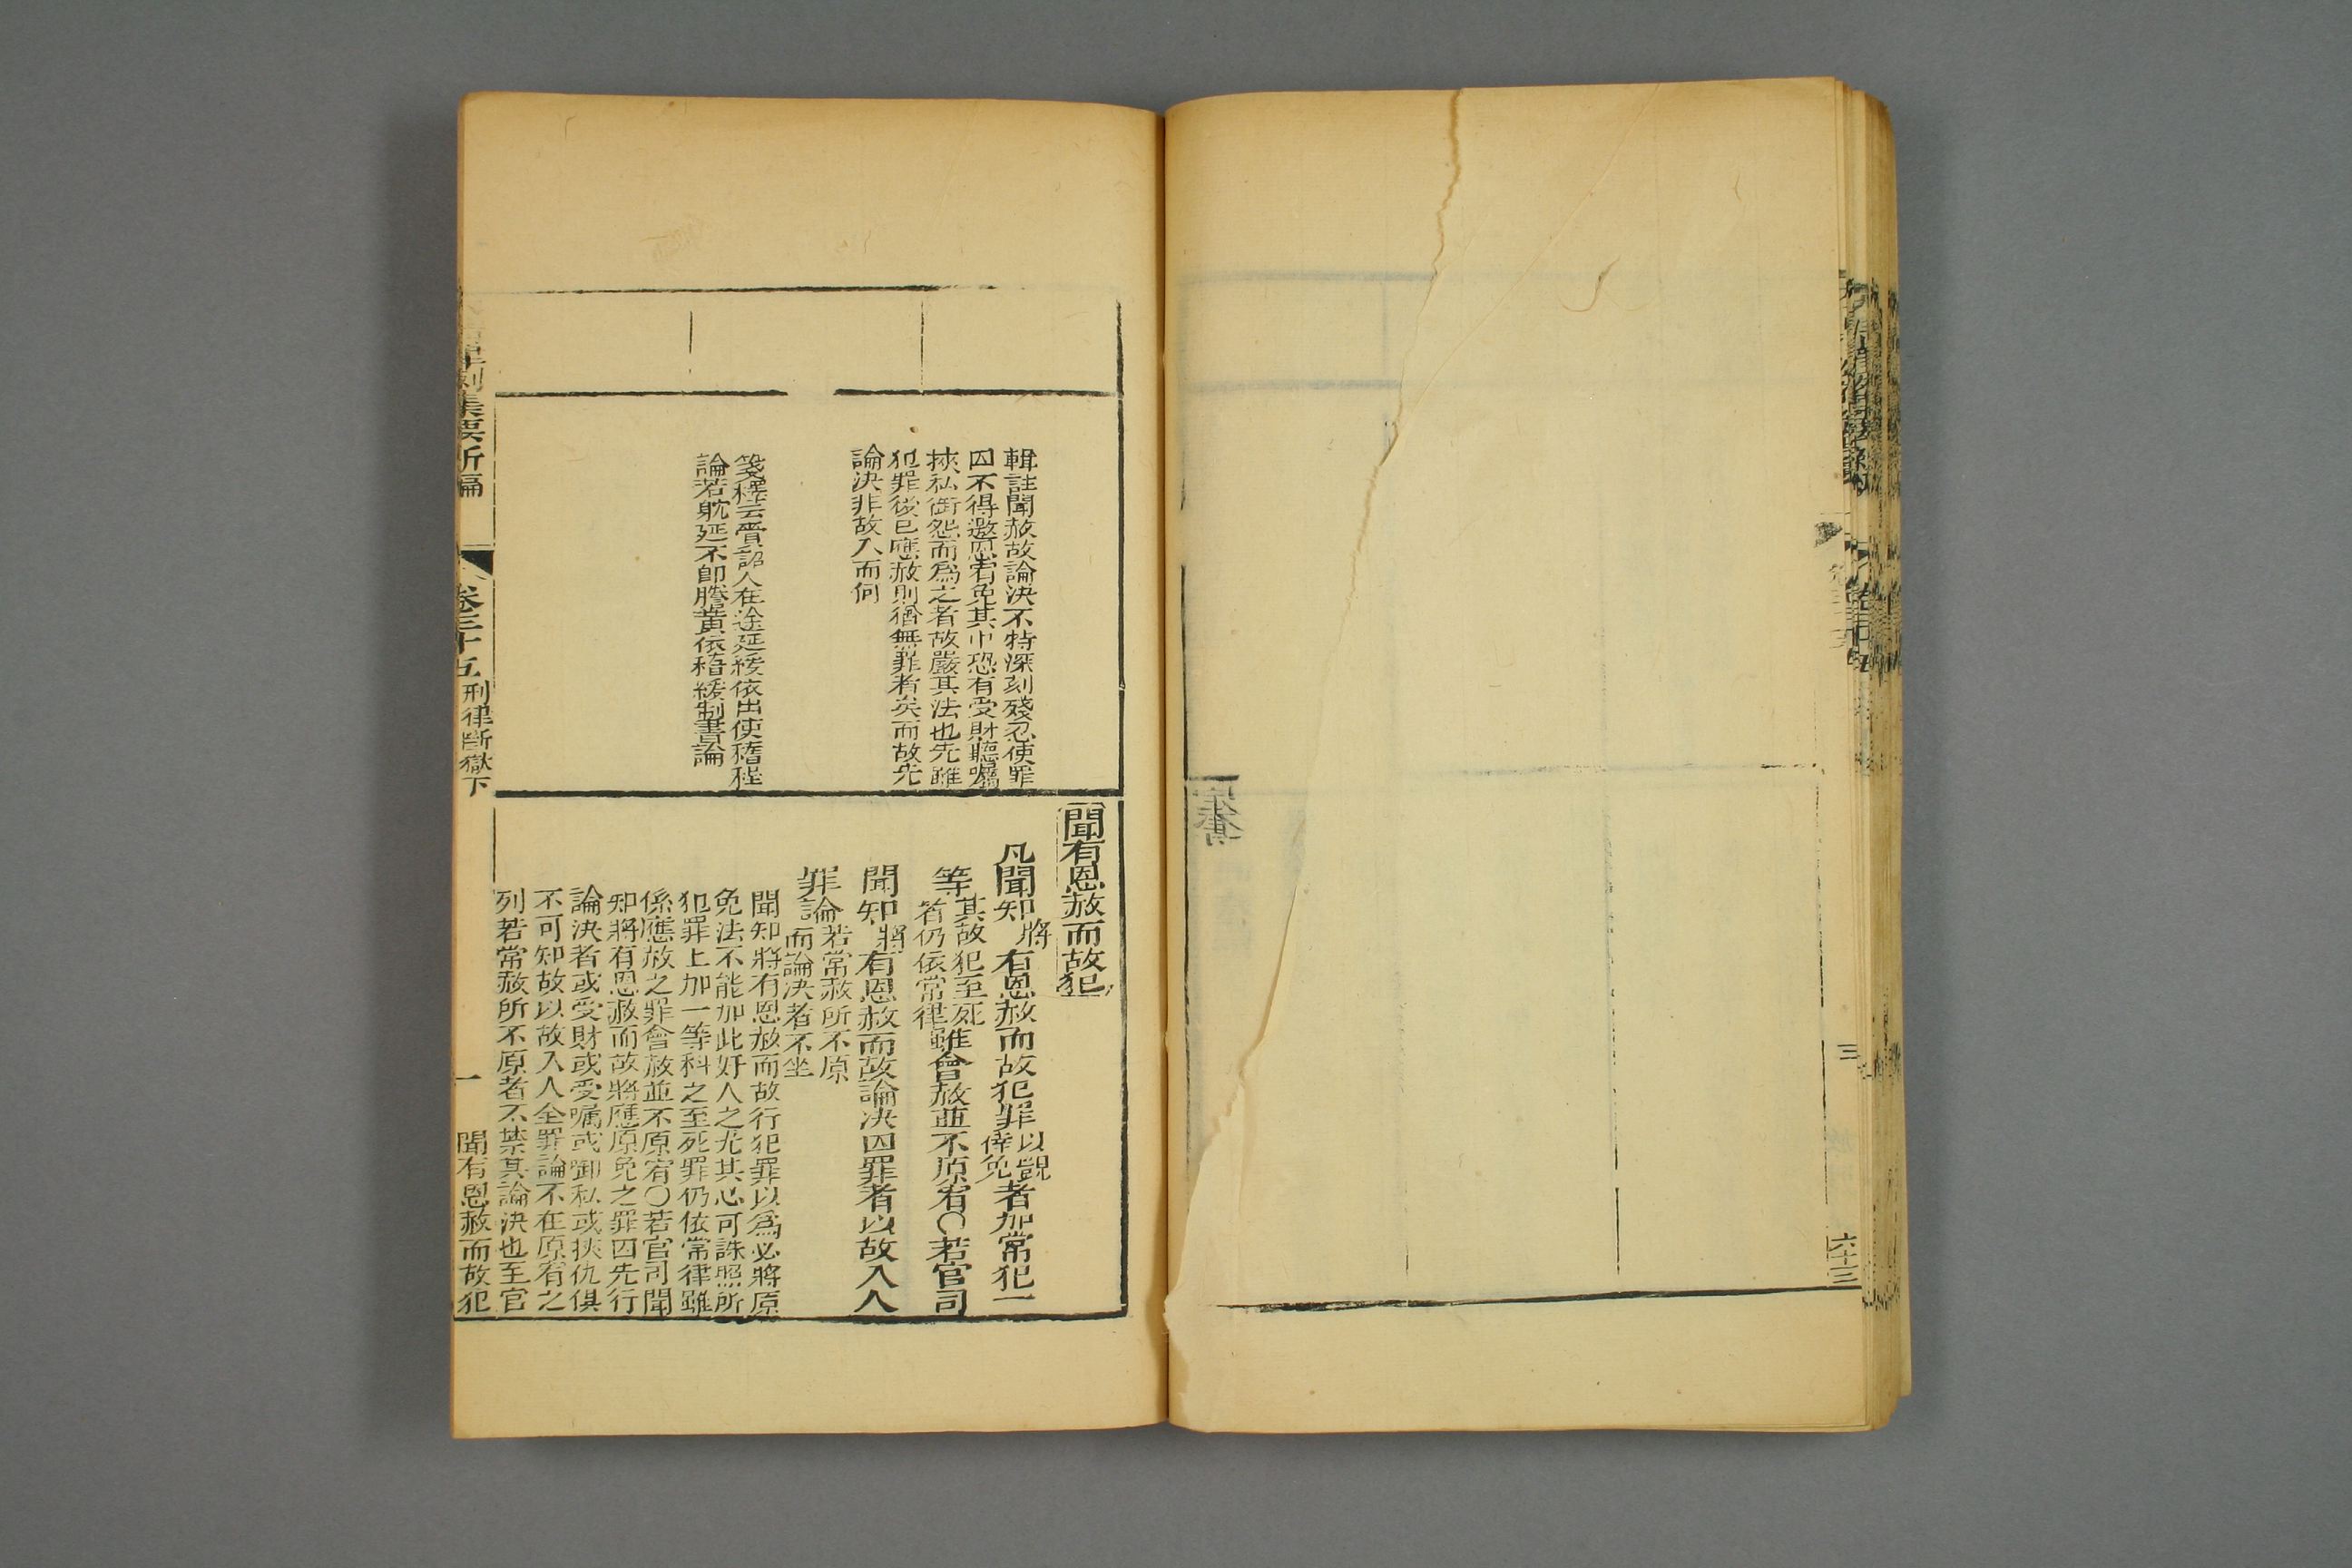 六十三
三
輯註聞赦故論決不特深刻殘忍使罪
囚不得邀恩宥免其中恐有受財聽囑
挾私銜怨而為之者故嚴其法也先雖
犯罪後已應赦則猶無罪者矣而故先
論決非故入而何
箋釋云賫詔人在途延緩依出使稽程
論若躭延不卽謄黃依稽緩制書論
聞有恩赦而故犯
凡聞知將有恩赦而故犯罪以覬倖免者加常犯一
等其故犯至死者仍依常律雖會赦並不原宥〇若官司
聞知將有恩赦而故論決囚罪者以故入人
罪論若常赦所不原而論決者不坐
聞知將有恩赦而故行犯罪以為必將原
免法不能加此奸人之尤其心可誅照所
犯罪上加一等科之至死罪仍依常律雖
係應赦之罪會赦並不原宥〇若官司聞
知將有恩赦而故將應原免之罪囚先行
論決者或受財或受囑或御私或挾仇俱
不可知故以故入人全罪論不在原宥之
列若常赦所不原者不禁其論決也至官
集要新編
卷三十五
刑律斷獄下
一
聞有恩赦而故犯